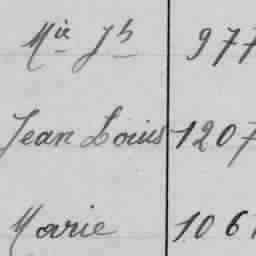 Mie Jh 977
Jean Louis 1207
Marie 1061